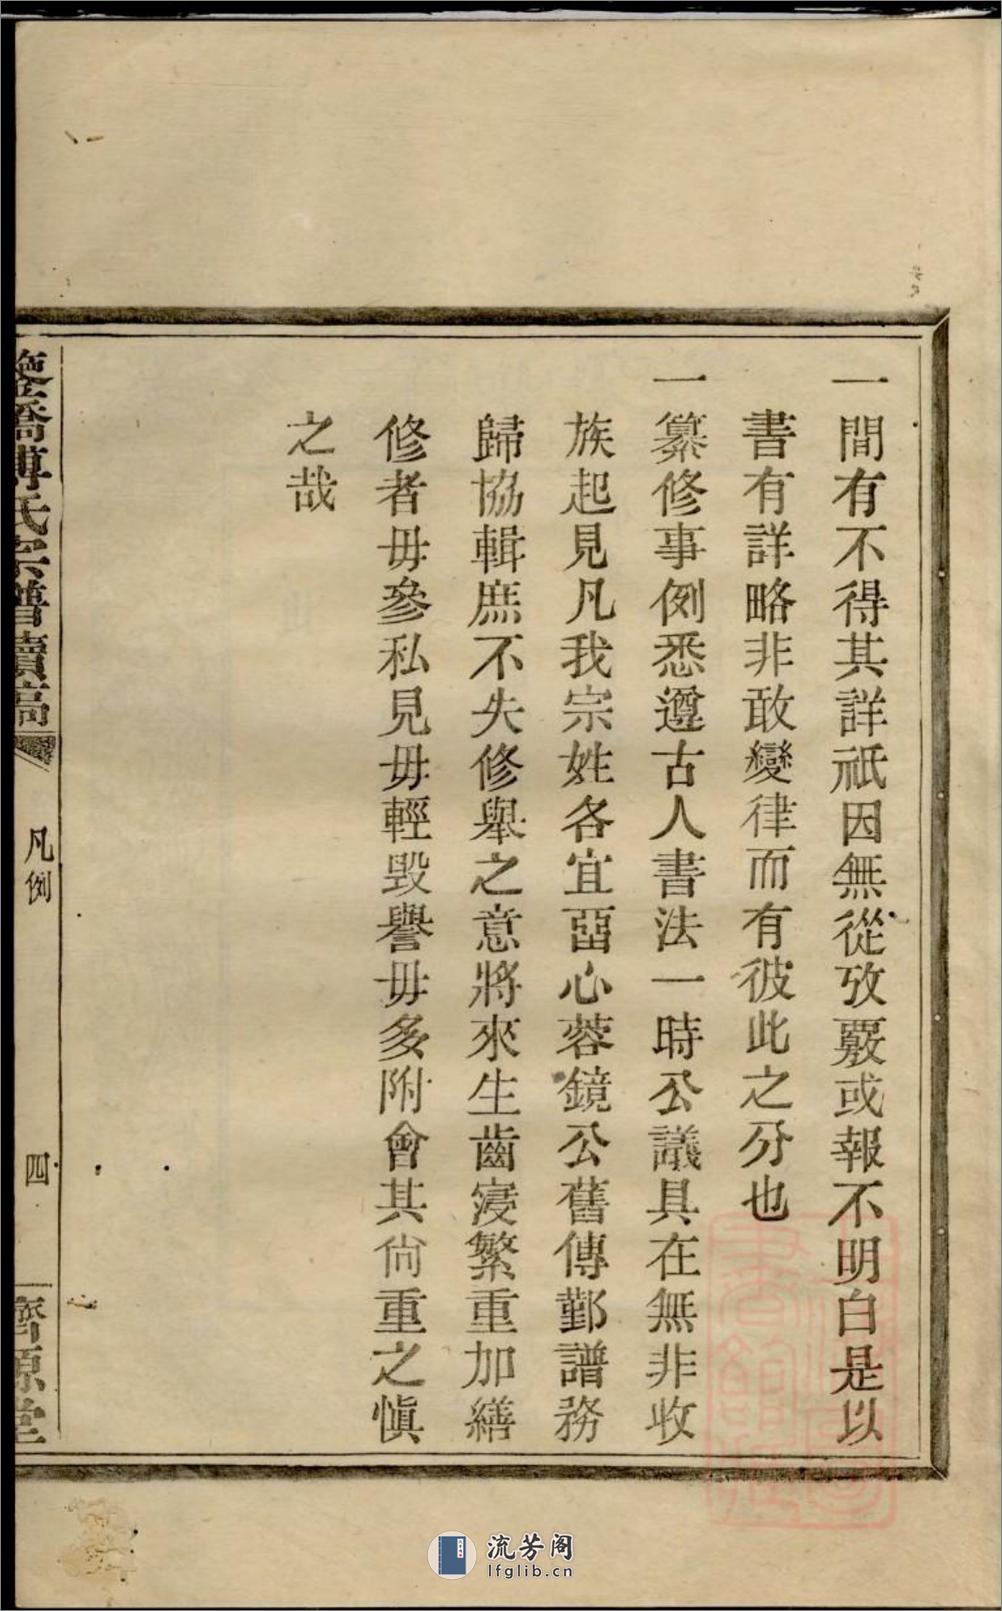 一間有不得其詳祇因無從攷覈或報不明白是以
書有詳略非敢變律而有彼此之分也
一纂修事例悉遵古人書法一時公議具在無非收
族起見凡我宗姓各宜畱心蓉鏡公舊傳鄞譜務
歸協輯庶不失修舉之意將來生齒寖繁重加繕
修者毋參私見毋輕毀譽毋多附會其尙重之愼
之哉
橋傅氏宗譜續稿
凡例
四
濟源堂
流芳阁
lfglib.cn